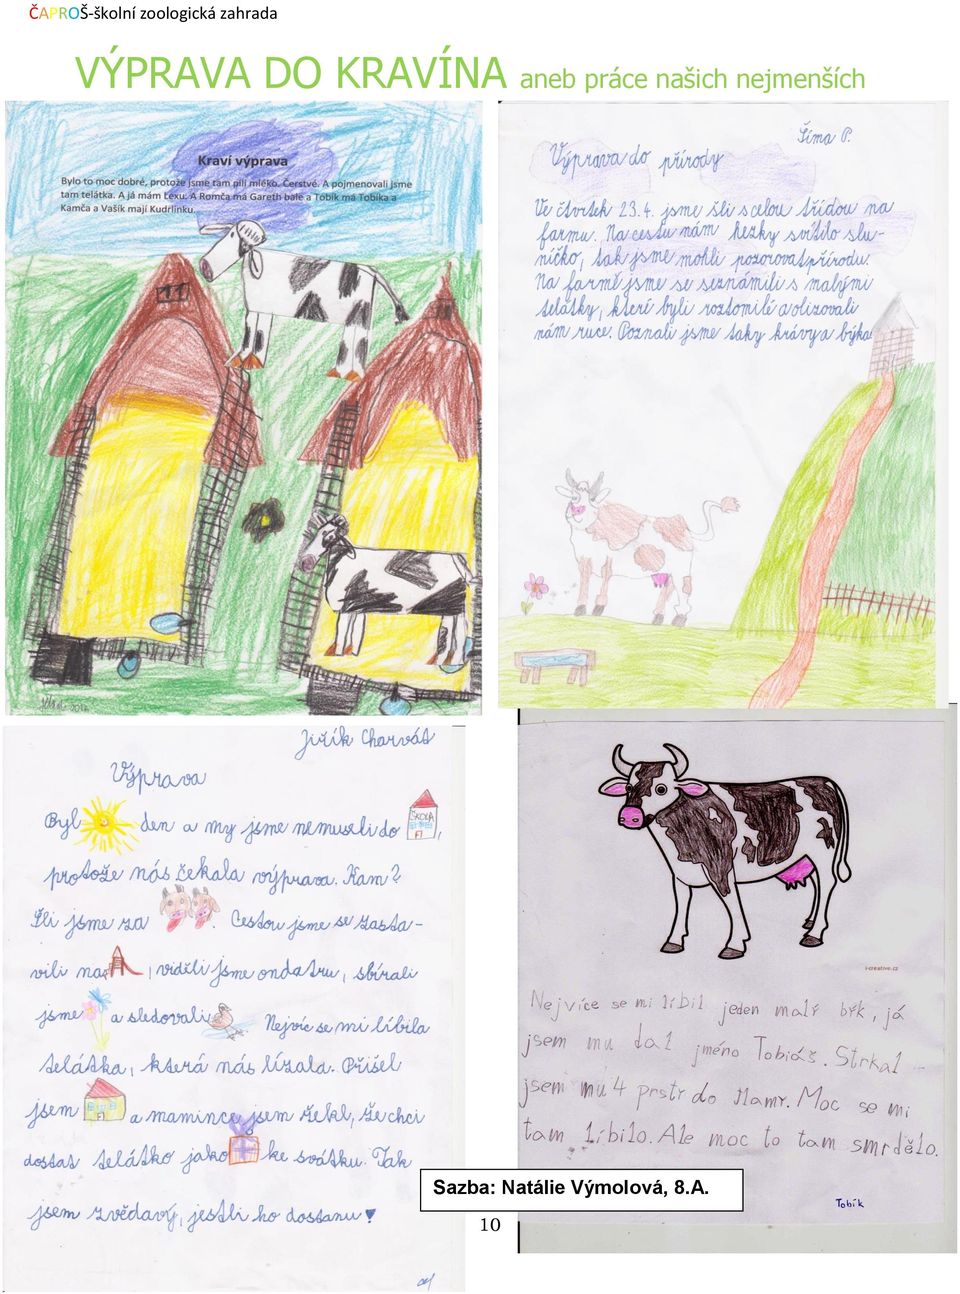 ČAPROŠ-školní zoologická zahrada
VÝPRAVA DO KRAVÍNA aneb práce našich nejmenších
Kraví výprava
Bylo to moc dobré, protože jsme tam pili mléko. Čerstvé. A pojmenovali jsme
tam telátka. A já mám Lexu. A Romča má Gareth bale a Tobík má Tobíka a
Kamča a Vašík mají Kudrlinku.
2014
Šíma P.
Výprava do přírody
Ve čtvrtek 23.4. jsme šli s celou třídou na
farmu. Na cestu nám hezky svítilo slu-
níčko, tak jsme mohli pozorovat přírodu.
Na farmě jsme se seznámili s malými
telátky, kteří byli roztomilé a olizovali
nám ruce. Poznali jsme taky krávy a býka.
Jiřík Charvát
Výprava
Byl den a my jsme nemuseli do ŠKOLA,
protože nás čekala výprava. Kam?
Šli jsme za . Cestou jsme se zasta-
vili na , viděli jsme ondatru, sbírali
jsme a sledovali . Nejvíc se mi líbila
telátka, která nás lízala. Přišel
jsem a mamince jsem řekl, že chci
dostat telátko jako ke svátku. Tak
jsem zvědavý, jestli ho dostanu!
i-creative.cz
Nejvíce se mi líbil jeden malý býk, já
jsem mu dal jméno Tobiáš. Strkal
jsem mu 4 prsty do tlamy. Moc se mi
tam líbilo. Ale moc to tam smrdělo.
Tobík
Sazba: Natálie Výmolová, 8.A.
10